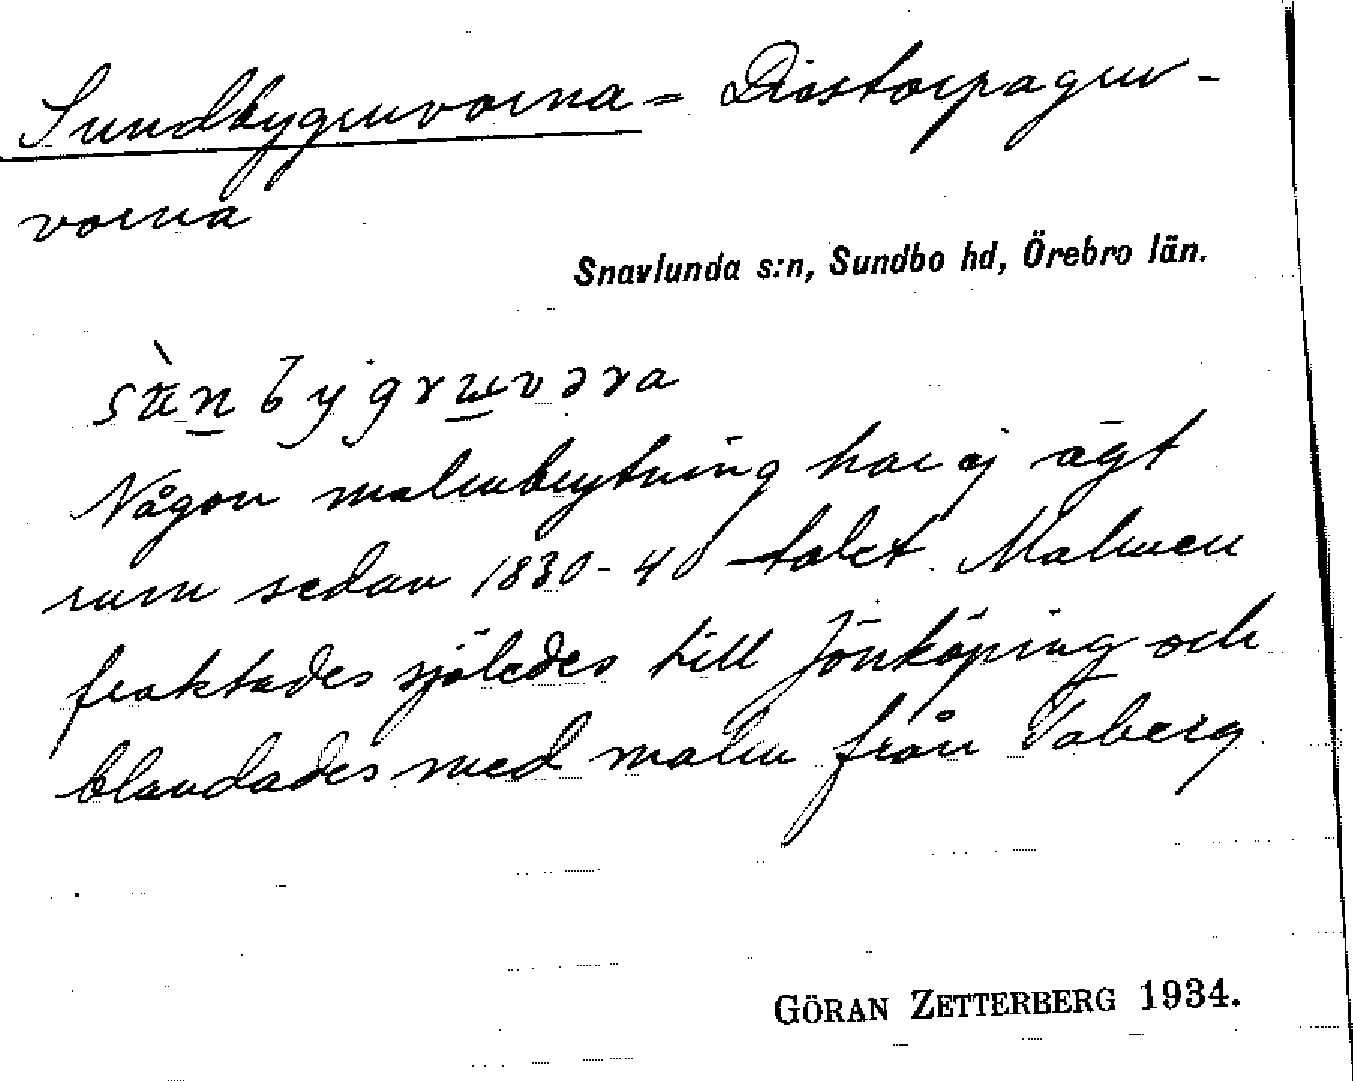 Sundbygruvorna = Disstorpagru-
vorna
Snavlunda s:n, Sundbo hd, Örebro län.
Någon malmbrytning har ej ägt
rum sedan 1830-40-talet. Malmen
fraktades sjöledes till Jönköping och
blandades med malm från Taberg
GÖRAN ZETTERBERG 1934.